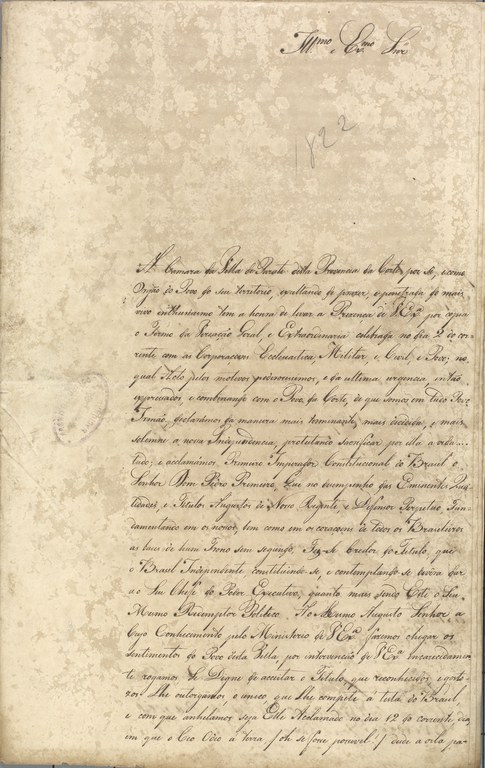 Ill.mo e Ex.mo Snr
1822
A Camara da Villa de Parati desta Provincia da Corte por Si, e como
Orgão do Povo do seu territorio, exultando de prazer, e penetrada do mais
vivo enthusiasmo tem a honra de levar a Presença de V Ex.a por copia
o Termo da Vereação Geral, e Extraordinaria celebrada no dia 2 do cor-
rente com as Corporaçoens Ecclesiastica, Militar, e Civil, e Povo, no
qual Acto, pelos motivos poderosissimos, e da ultima urgencia, então
expressados e combinando com o Povo da Corte, de que somos em tudo Povo
Irmão, declarámos da maneira mais terminante, mais decidida, e mais
solemne a nossa Independencia, protestando sacrificar por ella a vida
tudo; e acclamámos Primeiro Imperador Constitucional do Brasil o
Senhor Dom Pedro Primeiro, que no desempenho das Eminentes Qua-
lidades, e Titulos Augustos de Nosso Regente, e Defensor Perpetuo, Fun-
damentando em os nossos, bem como em os coraçoens de todos os Brasileiros
as bases de hum Trono sem segundo, Fez-Se Credor do Titulo, que
o Brasil Independente constituindo-se, e contemplando-se devia dar
ao Seu Chefe do Poder Executivo, quanto mais sendo Este o Seu
Mesmo Redemptor Politico. Ao Mesmo Augusto Senhor, a
Cujo Conhecimento pelo Ministerio de V Ex.a faremos chegar os
sentimentos do Povo desta Villa, por intervenção de V Ex.a encarecidamen-
te rogamos, Se Digne de acceitar o Titulo, que reconhecidos, e gosto-
zos Lhe outorgamos o unico, que Lhe compete á testa do Brasil,
e com que anhelamos seja Elle Acclamado no dia 12 do corrente, dia
em que o Ceo O deo á terra / oh se fosse possivel! / desde a orla pa-